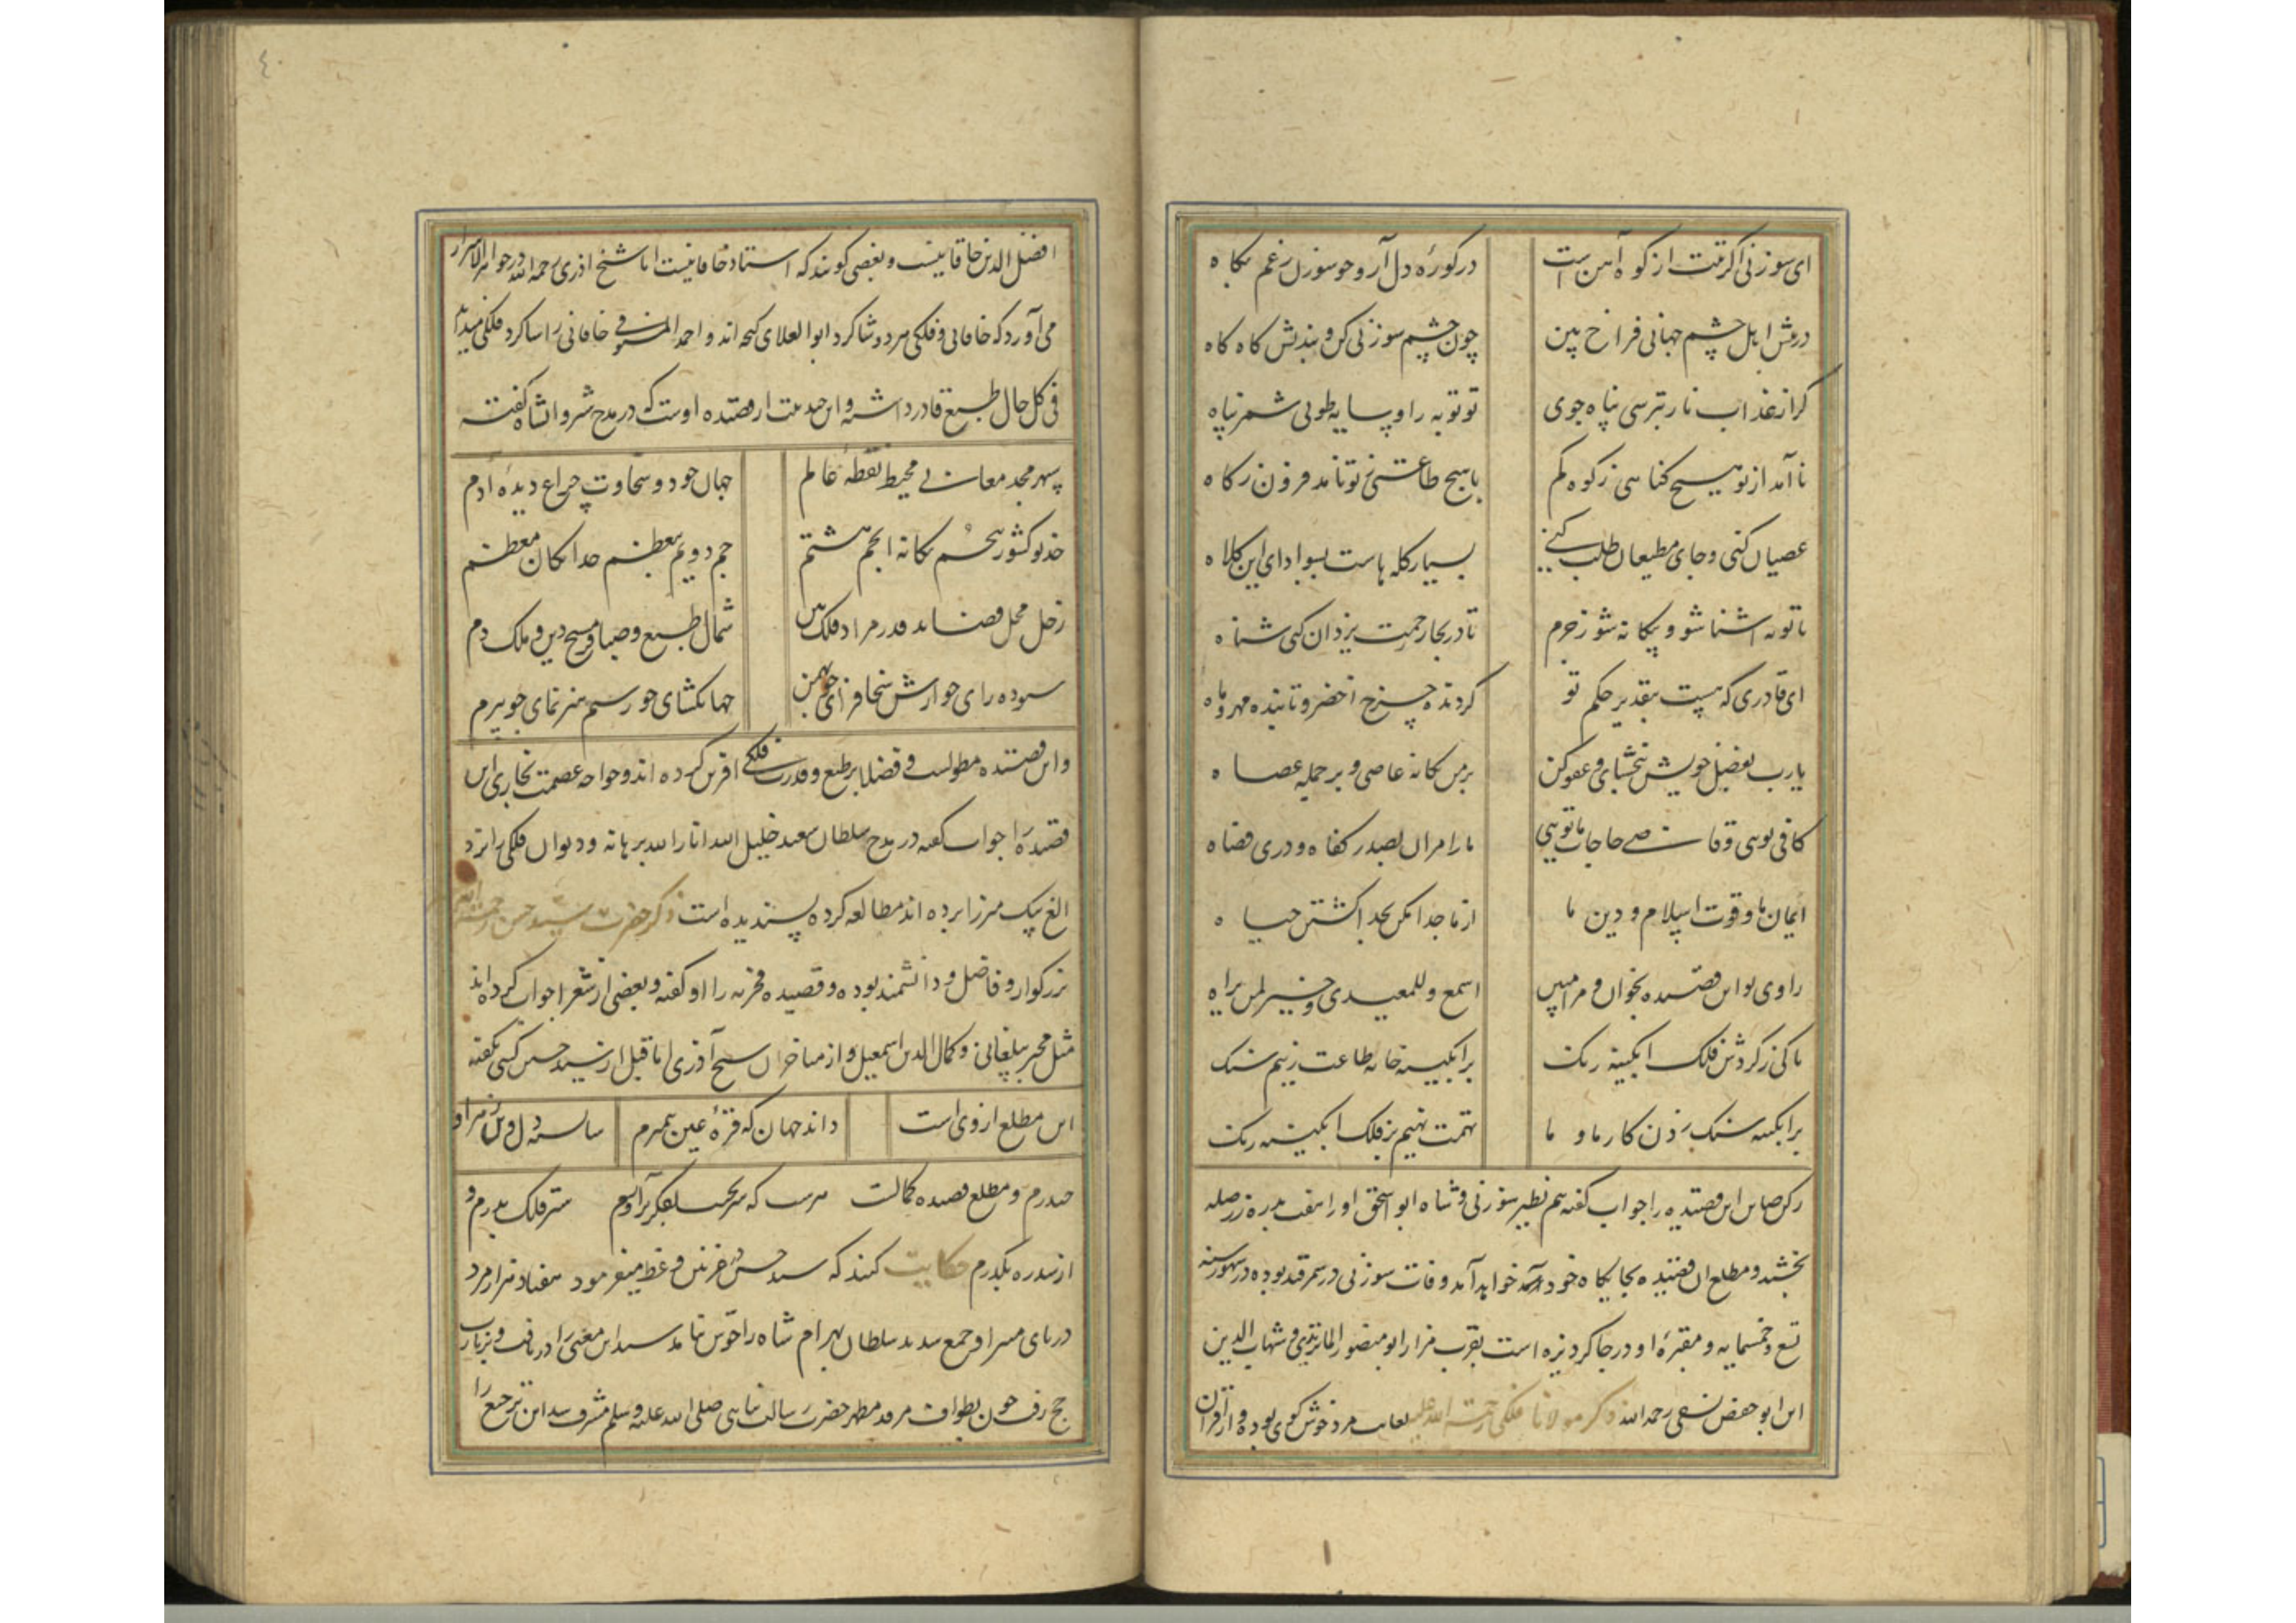 ای سوزنی اکر تنت از کوه آهن است درکورهٔ دل آر و چو سوزن ز غم بکاه
درویش اهل چشم جهانی فراخ بین چون چشم سوزنی کن و بندیش کاه کاه
کر از عذاب نار بترسی پناه جوی تو توبه را و سایه طوبی شمر پناه
نا آمد از تو هیچ کناهی ز کوه کم با هیچ طاعتی تو نامد فزون ز کاه
عصیان کنی و جای مطیعان طلب کنی بسیار کله هاست بسودای این کلاه
با توبه آشنا شو و بیکانه شو ز جرم تا در بحار رحمت یزدان کنی شناه
ای قادری که هست بتقدیر حکم تو کردنده چرخ اخضر و تابنده مهر و ماه
یارب بفضل خویش ببخشای و عفو کن بر من کانه عاصی و بر جمله عصاه
کافی تویی و قاضی حاجات ما تویی ما را مران بصدر کفاه و در قضاه
ایمان ما و قوت اسلام و دین ما از ما جدا مکن بجدا کشتن حیاه
راوی تو این قصیده بخوان و مرا مبین اسمع وللمعیدی و خیر لمن یراه
تا کی ز کردش فلک ابکینه رنک بر ابکینه خانه طاعت زنیم سنک
بر ابکینه سنک زدن کار ما و ما تهمت نهیم بر فلک ابکینه رنک
رکن صاین این قصیده را جواب کفته هم نظیر سوزنی و شاه ابو اسحق او را هفت بدره زر صله
بخشید و مطلع ان قصیده بجایکاه خود خواهد آمد وفات سوزنی در سمرقند بوده در شهور سنه
تسع و خمسمایه و مقبرهٔ او در جاکردیزه است بقرب مزار ابو منصور الماتریدی و شهاب الدین
ابن ابو حفض نسفی رحمه الله ذکر مولانا فلکی رحمة الله علیه بغایت مرد خوش کوی بوده و از اقران
افضل الدین خاقانیست و بعضی کویند که استاد خاقانیست اما شیخ اذری رحمه الله در جواهر الاسرار
می آورد که خاقانی و فلکی هر دو شاکرد ابو العلای کنجه اند و احمد المستوفی خاقانی را شاکرد فلکی میداند
فی کل حال طبع قادر داشته و این چند بیت از قصیده اوست که در مدح شروانشاه کفته
سپهر مجد معانی محیط نقطهٔ عالم جهان جود و سخاوت چراغ دیدهٔ آدم
خدیو کشور پنجم یکانه انجم هشتم جم دویم بعظم خدایکان معظم
زحل محل قضا ید قدر مراد فلک شمال طبع و صبا مسیح دین و ملک دم
ستوده رای سخا فزای چو بهمن جهانکشای چو رستم هنر نمای چو نیرم
و این قصیده مطولست و فضلا بر طبع و قدرت فلکی افرین کرده اند و خواجه عصمت بخاری این
قصیده را جواب کفته در مدح سلطان سعید خلیل الله انار الله برهانه و دیوان فلکی را نزد
الغ بیک میرزا برده اند مطالعه کرده پسندیده است ذکر حضرت سید حسن رحمة الله
بزرکوار و فاضل و دانشمند بوده و قصیده فخریه را او کفته و بعضی از شعرا جواب کرده اند
مثل مجیر بیلقانی و کمال الدین اسمعیل و از متاخران شیخ آذری اما قبل از سید حسن کسی نکفته
این مطلع از وی است داند جهان که قرهٔ عین پیمبرم شایسته
حیدرم و مطلع قصیده کمالست
از سدره بکذرم حکایت کنند که سید حسن در غزنین وعظ میفرمود هفتاد هزار مرد
در پای منبر او جمع شدند سلطان بهرام شاه را خوش نیامد سید این معنی را دریافت و بزیارت
حج رفت چون بطواف مرقد مطهر حضرت رسالت پناهی صلی الله علیه وسلم مشرف شد این ترجیع را